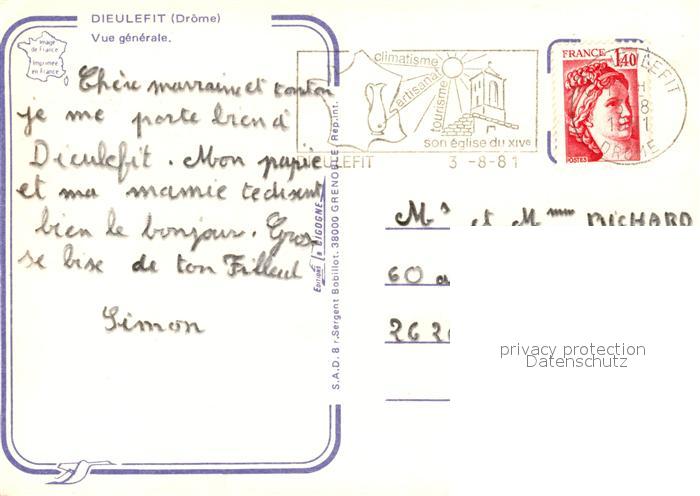 DIEULEFIT (Drôme)
Vue générale.
Image
de France
Imprimée
en France
Chère marraine et tonton
je me porte bien à
Dieulefit. Mon papie
et ma mamie te disent
bien le bonjour. Gros-
se bise de ton Filleul
Simon
Editions la CIGOGNE
S.A.D. 8 r. Sergent Bobillot. 38000 GRENOBLE. Rep. int.
climatisme
artisanat
tourisme
son église du XIVe
EULEFIT 3-8-81
FRANCE 1,40
POSTES
LEFIT
DROME
Mr et Mmm MICHARD
60
262
privacy protection
Datenschutz